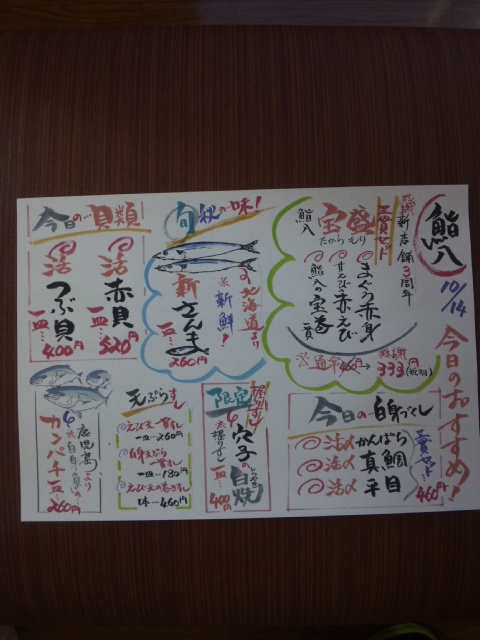 鮨八
10/14
今日のおすすめ!
新店舗3周年
三貫セット
鮨八
宝盛
たからもり
まぐろ赤身
甘えび赤えび
鮨八の宝巻
一貫
※通常460円→
333円
旬
秋の味!
北海道より
※新鮮!
新さんま
一皿…
260円
今日の…貝類
活赤貝
一皿…520円
活つぶ貝
一皿…400円
今日の白身づくし
三貫セット
460円
活〆かんぱち
活〆真鯛
活〆平目
限定
握りずし
穴子の白焼
しらやき
※握りずし
一皿…
400円
天ぷらすし
えび天一貫すし
一皿…260円
白身天ぷら
一貫すし
一皿…180円
えび天の巻きすし
一本…460円
鹿児島より
※白身の魚の…
カンパチ
一皿…260円